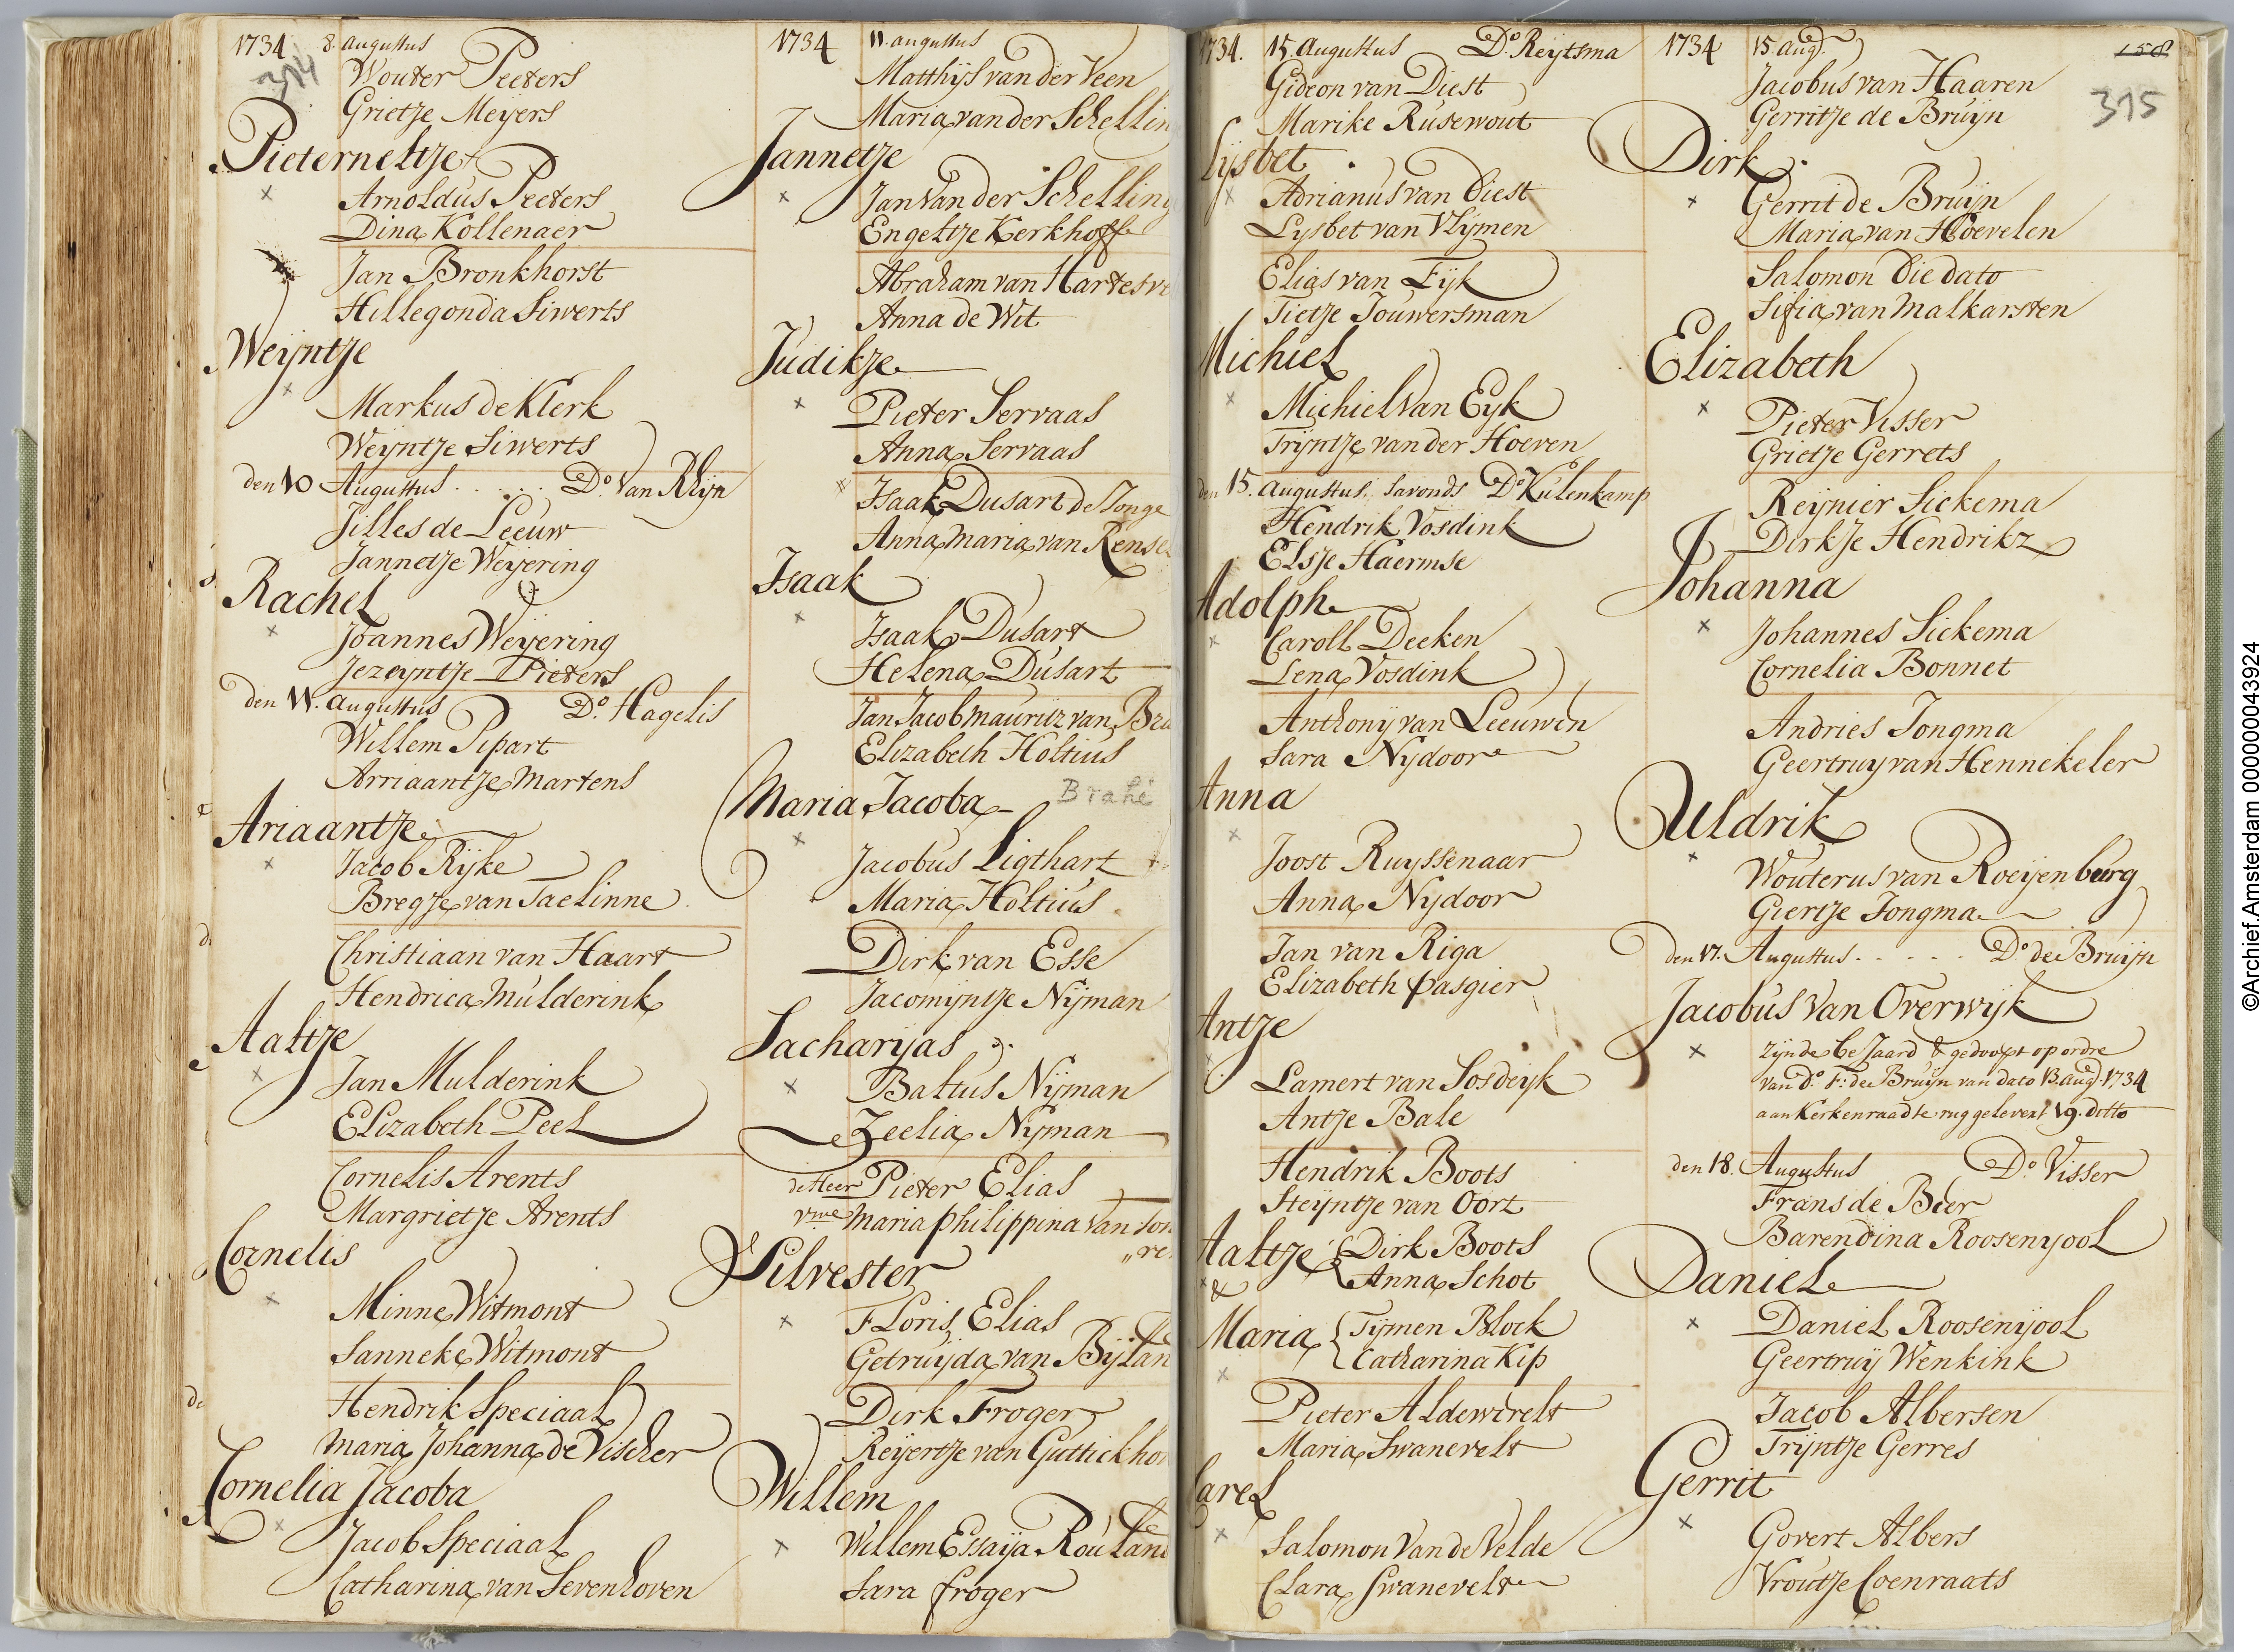 1734 8. Augustus
314
Wouter Peeters
Grietje Meyers
Pieterneltje
Arnoldus Peeters
Dina Kollenaer
Jan Bronkhorst
Hillegonda Siwerts
Weijntje
Markus de Klerk
Weijntje Siwerts
den 10 Augustus . . . . . Do. Van Rhijn
Jilles de Leeuw
Jannetje Weijering
Rachel
Joannes Weijering
Jezeyntje Pieters
den 11. augustus Do. Hagelis
Willem Pipart
Arriaantje Martens
Ariaantje
Jacob Rijke
Bregje van Taelinne
Christiaan van Haart
Hendrica Mulderink
Aaltje
Jan Mulderink
Elizabeth Peel
Cornelis Arents
Margrietje Arents
Cornelis
Minne Witmont
Sanneke Witmont
Hendrik Speciaal
Maria Johanna de Vischer
Cornelia Jacoba
Jacob Speciaal
Catharina van Sevenhoven
1734 11. augustus
Matthijs van der Veen
Maria van der Schellin
Jannetje
Jan Van der Schelling
Engeltje Kerkhoff
Abraham van Hartesve
Anna de Wit
Judikje
Pieter Servaas
Anna Servaas
Isaak Dusart de Jonge
Anna Maria van Rense
Isaak
Isaak Dusart
Helena Dusart
Jan Jacob Mauritz van Bra
Elizabeth Holtius
Maria Jacoba Brahé
Jacobus Ligthart
Maria Holtius
Dirk van Esse
Jacomijntje Nijman
Sacharijas
Baltus Nijman
Zeelia Nijman
de Heer Pieter Elias
vrwe Maria Philippina Van Son
„re
Silvester
Floris Elias
Getruijda van Bijlan
Dirk Froger
Reijertje van Guttickho
Willem
Willem Essaija Rouland
Sara froger
1734. 15. Augustus Do. Reytsma
Gideon van Diest
Marike Rusewout
Lijsbet
Adrianus van Diest
Lysbet van Vlijmen
Elias van Eyk
Tietje Jouwersman
Michiel
Michiel van Eyk
Trijntje van der Hoeven
den 15. Augustus, savonds Do. Kulenkamp
Hendrik Vosdink
Elsje Haermse
Adolph
Caroll Deeken
Lena Vosdink
Anthonij van Leeuwen
Sara Nydoor
Anna
Joost Ruyssenaar
Anna Nydoor
Jan van Riga
Elizabeth Pasgier
Antje
Lamert van Sosdeyk
Antje Bale
Hendrik Boots
Steyntje van Oort
Aaltje { Dirk Boots
Anna Schot
&
Maria { Tijmen Block
Catharina Kip
Pieter Aldewerelt
Maria Swanevelt
Carel
Salomon Van de Velde
Clara Swanevelt
1734 15 Aug. 158
315
Jacobus van Haaren
Gerritje de Bruijn
Dirk
Gerrit de Bruijn
Maria van Hoevelen
Salomon Die dato
Sifia van Malkarsten
Elizabeth
Pieter Visser
Grietje Gerrets
Reijnier Sickema
Dirkje Hendrikz
Johanna
Johannes Sickema
Cornelia Bonnet
Andries Jongma
Geertruy van Hennekeler
Uldrik
Wouterus van Roeijenburg
Giertje Jongma
den 17. Augustus . . . . . Do. de Bruijn
Jacobus Van Overwyk
zijnde beJaard & gedoopt op ordre
van Do. F: de Bruijn van dato 13. aug. 1734
aan Kerkenraad te rug gelevert 19. ditto
den 18. Augustus Do. Visser
Frans de Beer
Barendina Roosenyool
Daniel
Daniel Roosenijool
Geertruij Wenkink
Jacob Albersen
Trijntje Gerres
Gerrit
Govert Albers
Vroutje Coenraats
©Archief.Amsterdam 000000043924